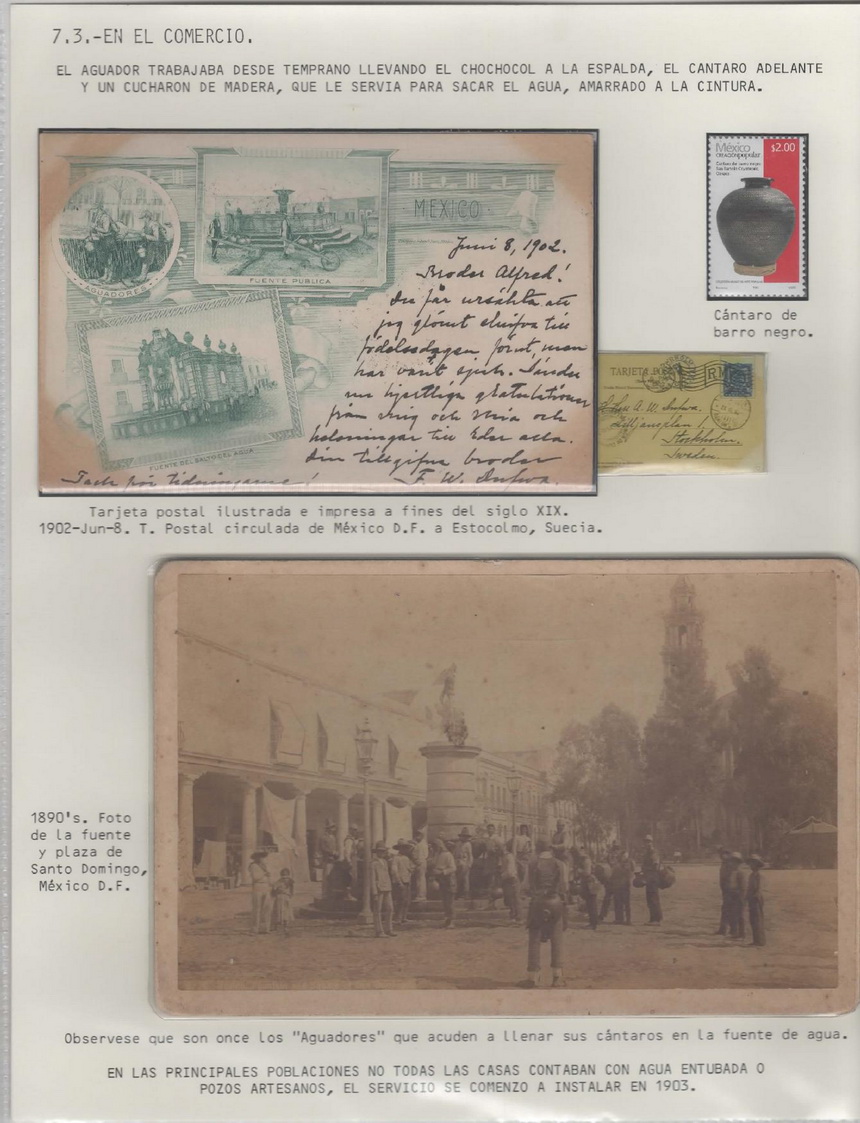 7.3.-EN EL COMERCIO.
EL AGUADOR TRABAJABA DESDE TEMPRANO LLEVANDO EL CHOCHOCOL A LA ESPALDA, EL CANTARO ADELANTE
Y UN CUCHARON DE MADERA, QUE LE SERVIA PARA SACAR EL AGUA, AMARRADO A LA CINTURA.
AGUADORES
FUENTE PUBLICA
MEXICO
FUENTE DEL SALTO DEL AGUA
Juni 8, 1902.
Broder Alfred!
Du får ursäkta att
jag glömt skrifva till
födelsedagen förut men
har varit sjuk. Sänder
nu hjertliga gratulationer
från mig och Mia och
helsningar till Eder alla.
Din tillgifne broder
F. W.
Tack för tidningarne!
México
creaciónpopular
$2.00
Cántaro de
barro negro.
TARJETA
A. W.
Lilljansplan 1
Stockholm.
Sweden.
Tarjeta postal ilustrada e impresa a fines del siglo XIX.
1902-Jun-8. T. Postal circulada de México D.F. a Estocolmo, Suecia.
1890's. Foto
de la fuente
y plaza de
Santo Domingo,
México D.F.
Observese que son once los "Aguadores" que acuden a llenar sus cántaros en la fuente de agua.
EN LAS PRINCIPALES POBLACIONES NO TODAS LAS CASAS CONTABAN CON AGUA ENTUBADA O
POZOS ARTESANOS, EL SERVICIO SE COMENZO A INSTALAR EN 1903.